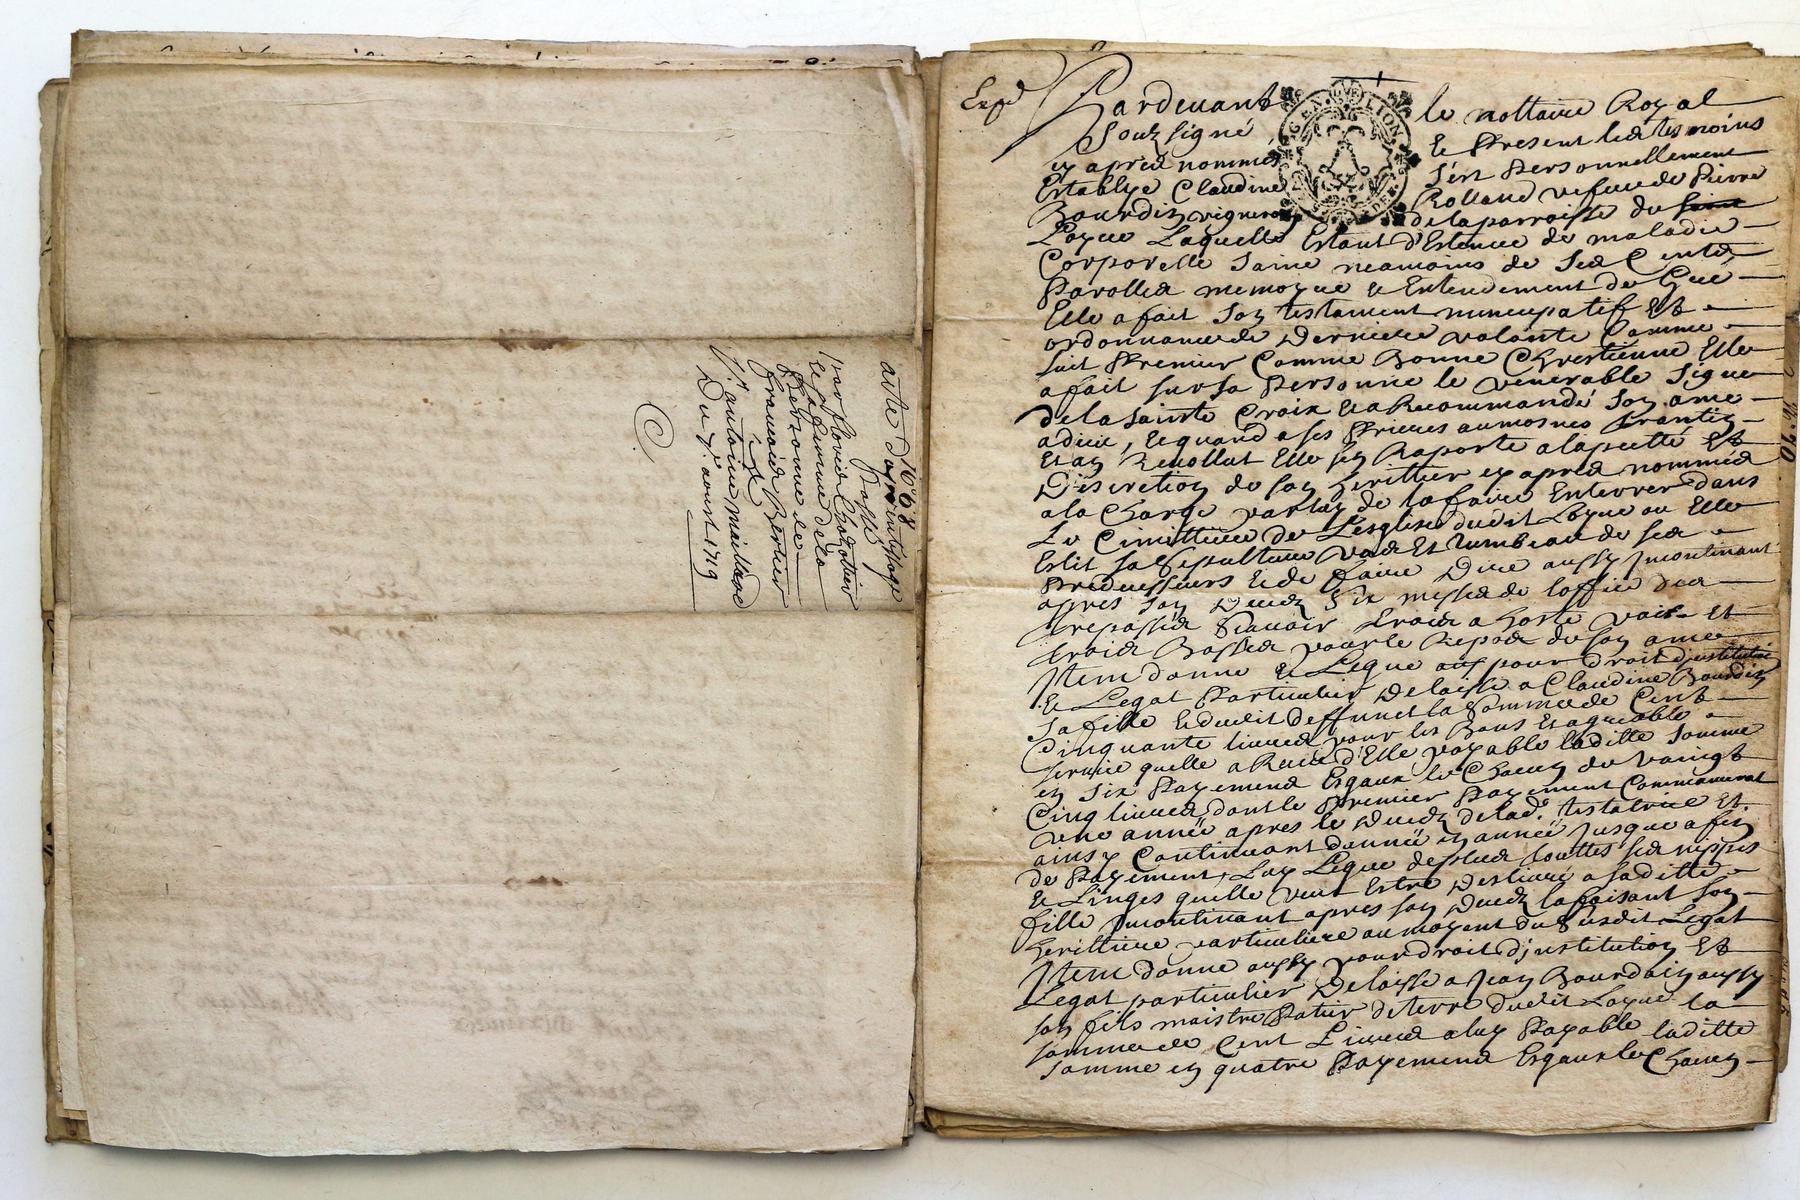 acte d'aprentissage
N° 68
Passé
par florie Chadottier
le femme de la
Personne de
francois Bertier
&
Sr antoine maillard
Du 7e aoust 1719
Expd
Pardevant le nottaire Royal
Souz signé & Present les tesmoins
cy apres nommés s'est Personnellement
Establye Claudine Rolland vefue de Pierre
Bourdin vigneron de la parroisse du
Loyue Laquelle Estant d'Estenue de maladie
Corporelle Saine neamoins de Ses Cents,
Parolles memoyre & Entendement de Gré
Elle a fait Son testament nuncupatif Et
ordonnance de derniere volonté Comme
suit Premier Comme Bonne Chrestienne Elle
a fait sur sa Personne le venerable Signe
de la Sainte Croix Et a Recommandé Son ame
a dieu, Et quand a ses Prieres aumosnes
Et au Elle s'en Raporte a la pietté Et
Discretion de son heritier cy apres nommés
a la Charge par luy de la faire Enterrer dans
Le Cimittiere de L'esglise dudit Loyue ou Elle
Eslit sa Sepulture Vas Et tumbeau de ses
Predecesseurs Et de faire Dire aussy Jncontinant
apres son Deces Six messes de l'office des
trepasses Scauoir trois a hoste voix Et
trois Basses pour le Repos de son ame
Jtem donne & Legue aussy pour droit d'institution
& Legat Particulier delaisse a Claudine Bourdin
Sa fille & dudit deffunct la Somme de Cent
Cinquante liures pour les Bons Et agreable
seruice quelle a Receu d'Elle payable laditte Somme
en Six Payemens Esgaux le Chacun de vaingt
Cinq liures dont le Premier Payement Commancerat
vne année apres le deces de lad.e testatrice Et
ainsy Continuant d'année en année Jusque a fin
de Payement, Luy Legue de plus touttes ses nippes
& Linges quelle veut Estre Desliure a saditte
fille Jncontinant apres son deces la faisant son
heritiere particuliere au moyent du Susdit Legat
Jtem donne aussy pour droit d'institution Et
Legat particulier Delaisse a Jean Bourdain aussy
son fils maistre Patier de terre dudit Loyue la
somme de Cent Liures a luy Payable laditte
somme en quatre Payemens Esgaux le Chacun
GEN. DE LION